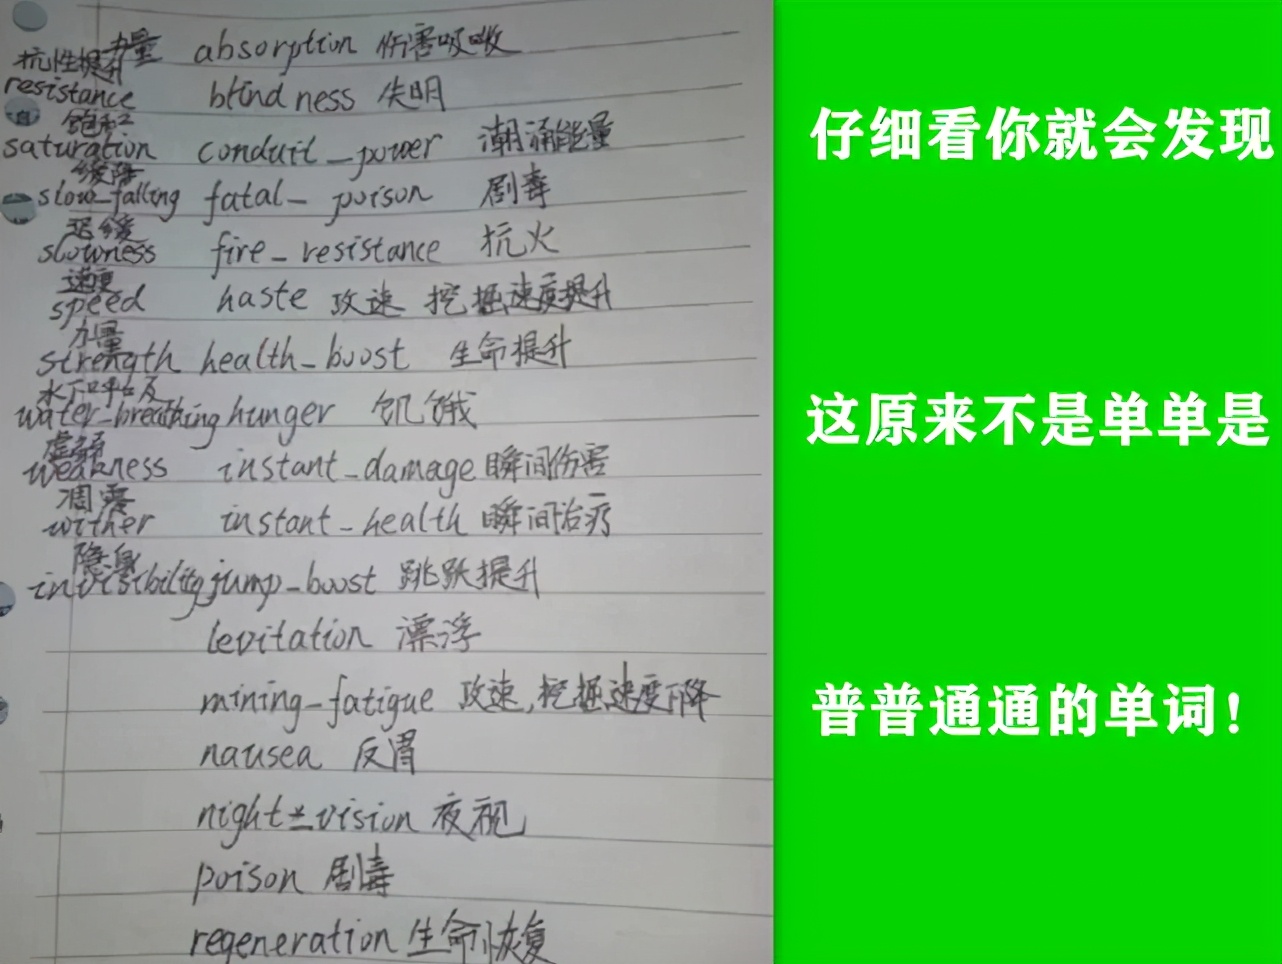 力量 absorption 伤害吸收
抗性提升
resistance blindness 失明
饱和
saturation conduit_power 潮涌能量
缓降
slow_falling fatal_poison 剧毒
迟缓
slowness fire_resistance 抗火
速度
speed haste 攻速 挖掘速度提升
力量
strength health_boost 生命提升
水下呼吸
water_breathing hunger 饥饿
虚弱
weakness instant_damage 瞬间伤害
凋零
wither instant_health 瞬间治疗
隐身
invisibility jump_boost 跳跃提升
levitation 漂浮
mining_fatigue 攻速,挖掘速度下降
nausea 反胃
night_vision 夜视
poison 剧毒
regeneration 生命恢复
仔细看你就会发现
这原来不是单单是
普普通通的单词!